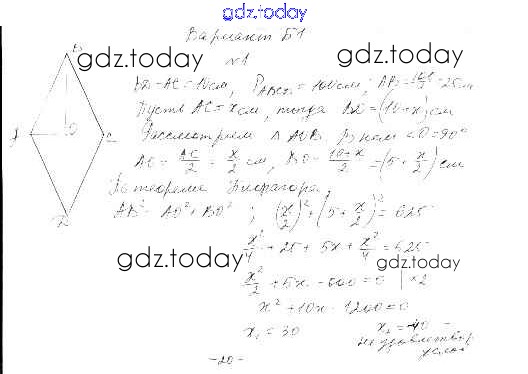 gdz.today
Вариант Б1
№1
gdz.today
gdz.today
BD-AC=10см, P_ABCD=100см; AB=100/4=25см
Пусть AC=x см, тогда BD=(10+x) см
Рассмотрим △ AOB. В нем ∠O=90°
AO=AC/2=x/2 см, BO=(10+x)/2=(5+x/2) см
По теореме Пифагора
AB²=AO²+BO²; (x/2)²+(5+x/2)²=625
x²/4+25+5x+x²/4=625
gdz.today
gdz.today
x²/2+5x-600=0 | ×2
x²+10x-1200=0
x₁=30 x₂=-40 -
не удовлетвор
услов
-20-